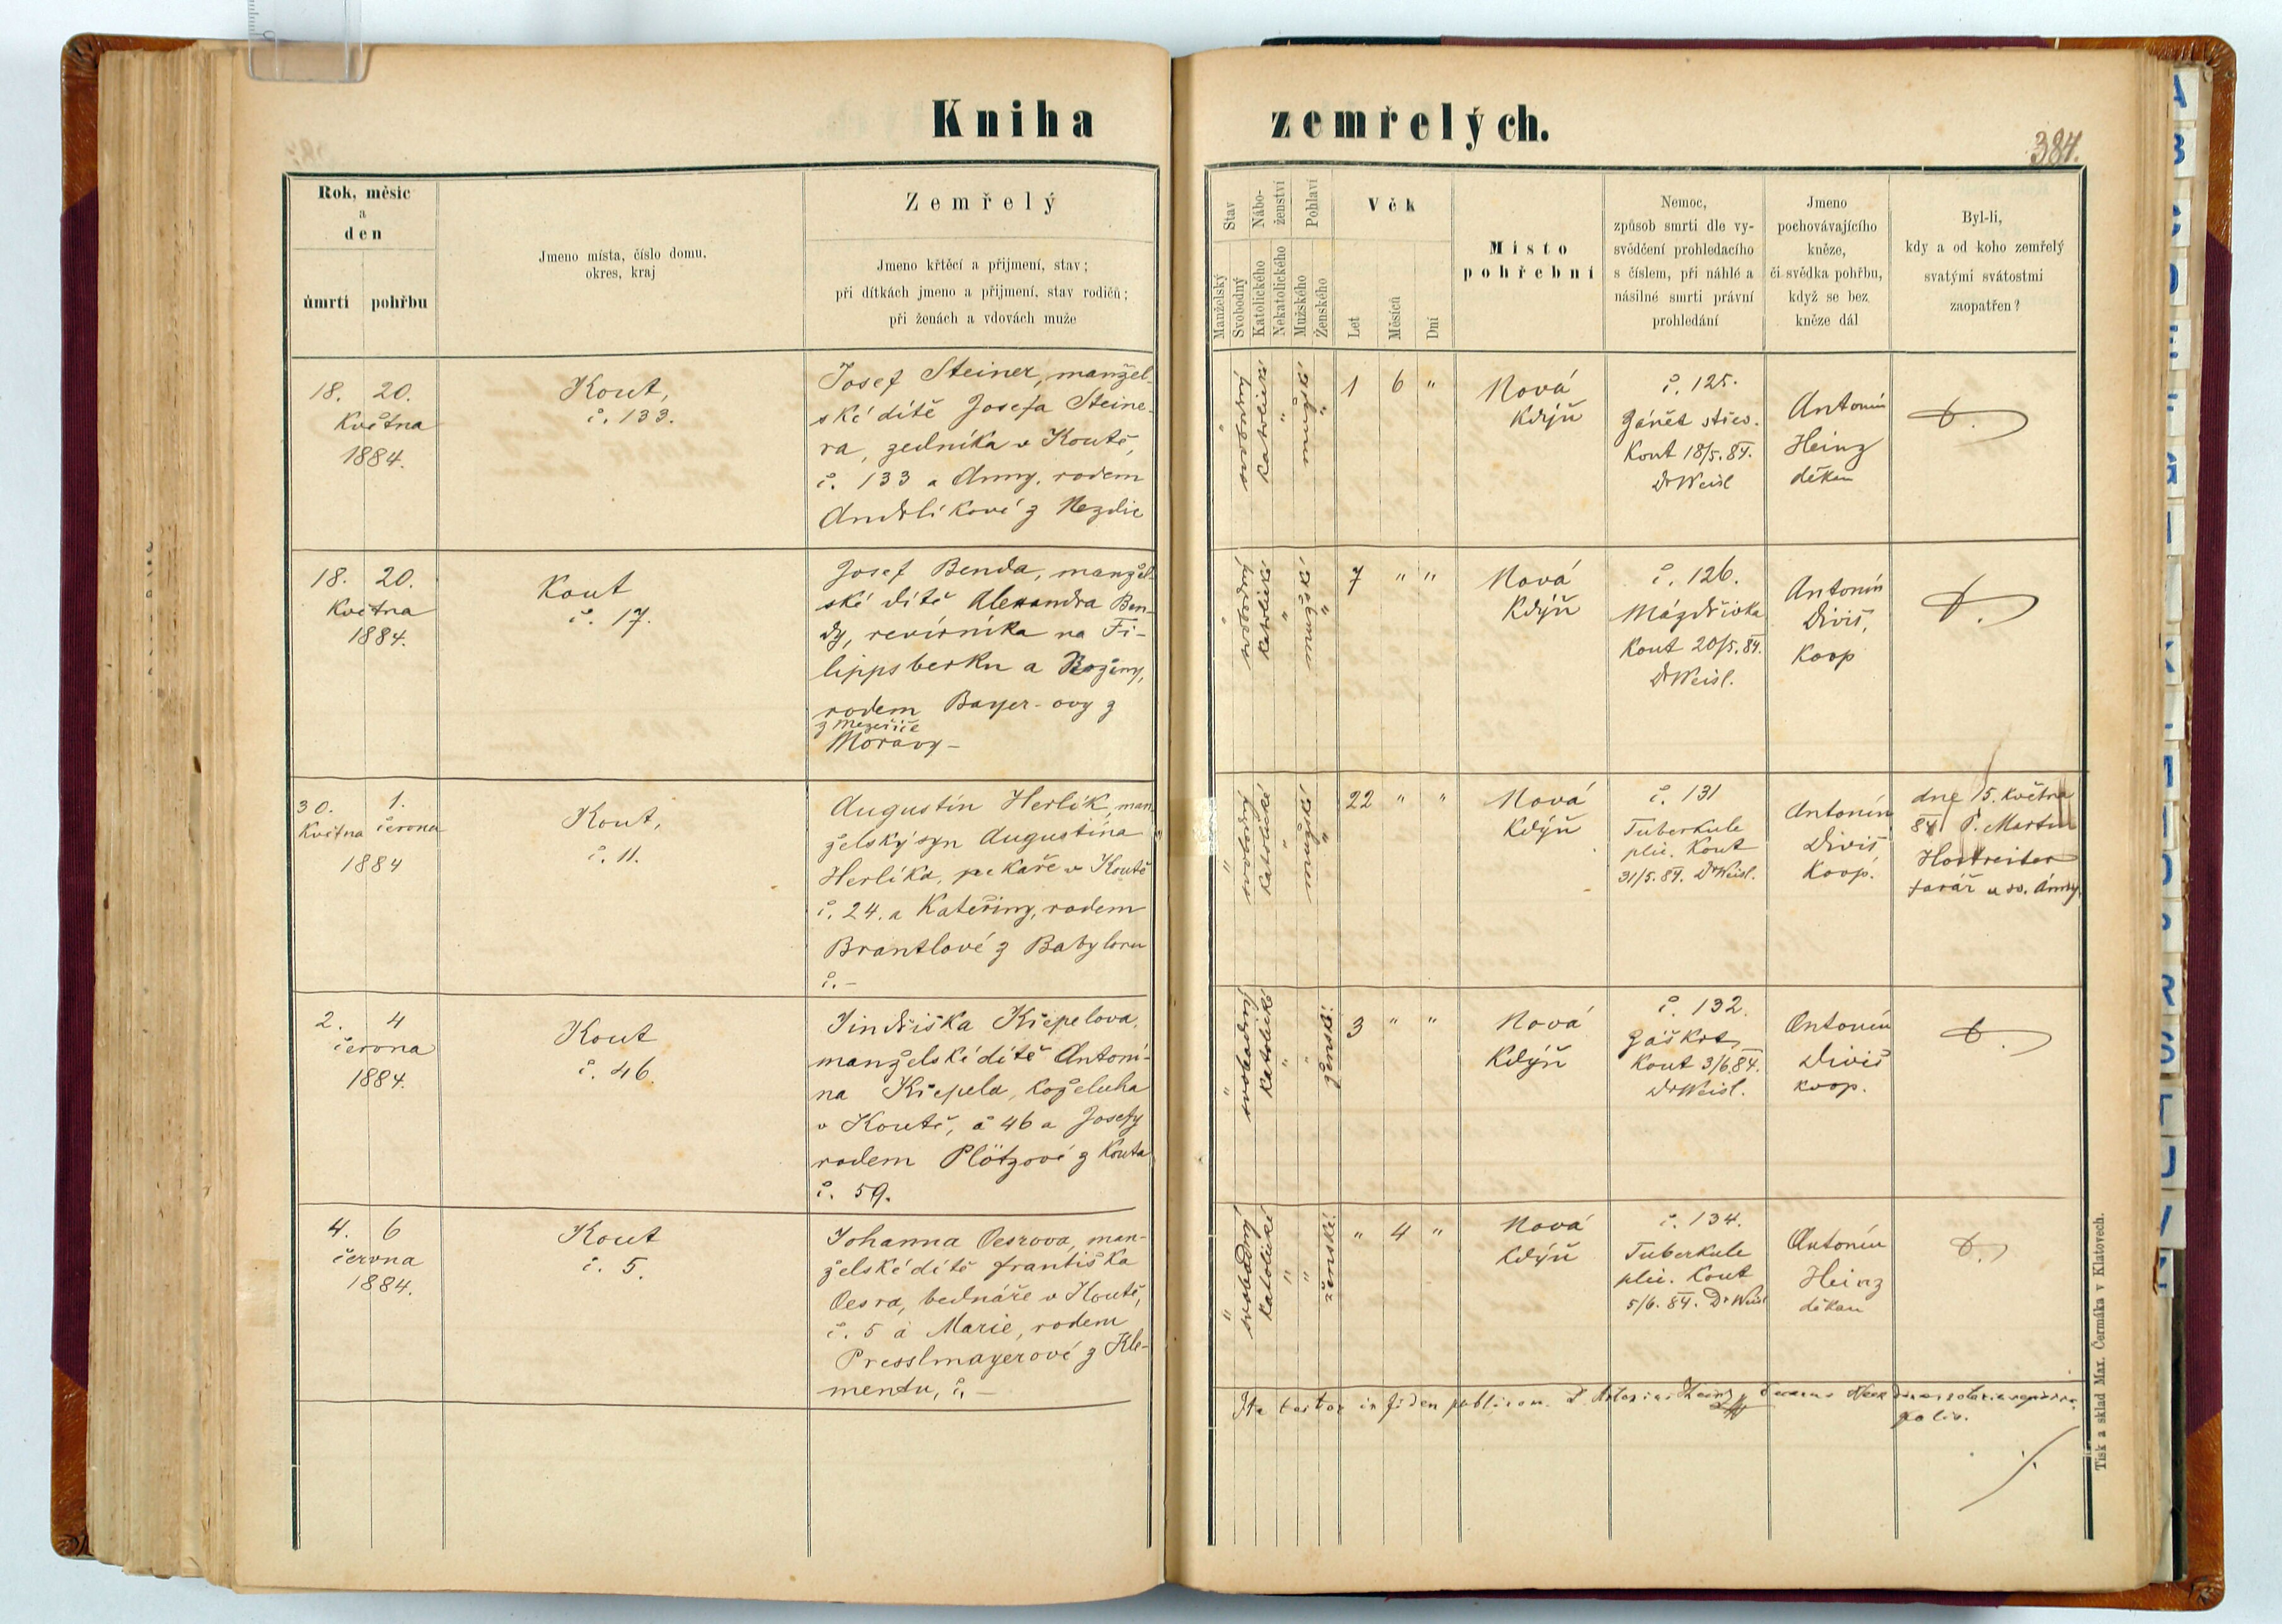 Kniha zemřelých.
384.
Rok, měsíc
a
den
úmrtí pohřbu
Jmeno místa, číslo domu,
okres, kraj
Zemřelý
Jmeno křtěcí a přijmení, stav;
při dítkách jmeno a přijmení, stav rodičů;
při ženách a vdovách muže
Stav
Manželský
Svobodný
Nábo-
ženství
Katolického
Nekatolického
Pohlaví
Mužského
Ženského
Věk
Let
Měsíců
Dní
Místo
pohřební
Nemoc,
způsob smrti dle vy-
svědčení prohledacího
s číslem, při náhlé a
násilné smrti právní
prohledání
Jmeno
pochovávajícího
kněze,
či svědka pohřbu,
když se bez
kněze dál
Byl-li,
kdy a od koho zemřelý
svatými svátostmi
zaopatřen?
18. 20.
Května
1884.
Kout,
č. 133.
Josef Steiner, manžel-
ské dítě Josefa Steine-
ra, zedníka v Koutě,
č. 133 a Anny, rodem
Andrlíkové z Nezdic
" svobodný
katolické "
mužské "
1 6 "
Nová
Kdýň
č. 125.
Zánět střev.
Kout 18/5.84.
Dr Weisl
Antonín
Heinz
děkan
18. 20.
Května
1884.
Kout
č. 17.
Josef Benda, manžel-
ské dítě Alexandra Ben-
dy, revírníka na Fi-
lippsberku a Rožiny,
rodem Bayer-ovy z
z Mezeříče
Moravy –
" svobodný
katolické "
mužské "
7 " "
Nová
Kdýň
č. 126.
Mázdřivka
Kout 20/5.84.
Dr Weisl.
Antonín
Diviš,
Koop
30. 1.
Května června
1884
Kout,
č. 11.
Augustin Herlík, man-
želský syn Augustina
Herlíka, pekaře v Koutě
č. 24. a Kateřiny, rodem
Brantlové z Babylonu
č. –
" svobodný
katolické "
mužské "
22 " "
Nová
Kdýň
č. 131
Tuberkule
plic. Kout
31/5.84. Dr Weisl.
Antonín
Diviš
Koop.
dne 15. května
84 P. Martin
farář u sv. Anny.
2. 4
června
1884.
Kout
č. 46.
Jindřiška Křepelova,
manželské dítě Antoní-
na Křepela, koželuha
v Koutě, č 46 a Josefy
rodem Plötzové z Kouta
č. 59.
" svobodný
katolické "
" ženské.
3 " "
Nová
Kdýň
č. 132.
Záškrt,
Kout 3/6.84.
Dr Weisl.
Antonín
Diviš
koop.
4. 6
června
1884.
Kout
č. 5.
Johanna Oesrova, man-
želské dítě Františka
Oesra, bednáře v Koutě,
č. 5 a Marie, rodem
Presslmayerové z Kle-
mentu, č. –
" svobodný
katolické "
" ženské.
" 4 "
Nová
Kdýň
č. 134.
Tuberkule
plic. Kout
5/6. 84. Dr Weisl
Antonín
Heinz
děkan
Ita testor in fidem publicam. P. Antonius Heinz
Tisk a sklad Max. Čermáka v Klatovech.